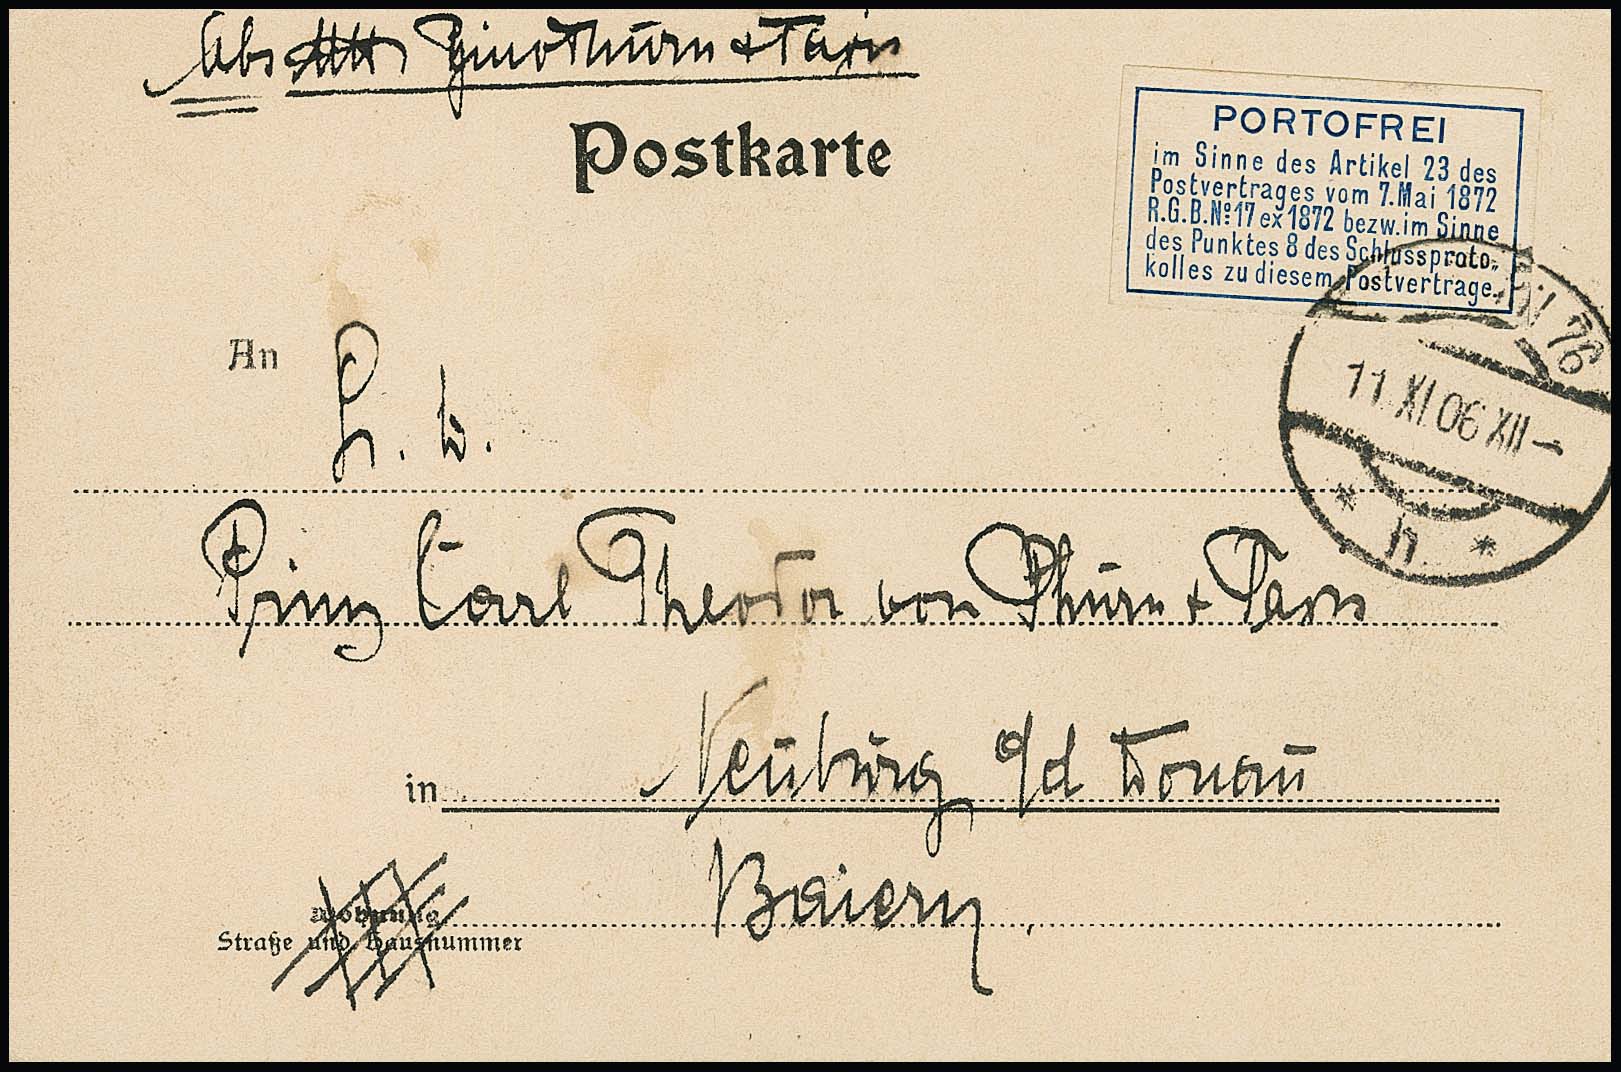 Abs Thurn + Taxis
Postkarte
PORTOFREI
im Sinne des Artikel 23 des
Postvertrages vom 7. Mai 1872
R.G.B. No 17 ex 1872 bezw. im Sinne
des Punktes 8 des Schlussproto-
kolles zu diesem Postvertrage.
76
11.XI.06 XII–
* h *
An
Prinz Carl Theodor von Thurn + Taxis
in Neuburg a/d Donau
Baiern
Wohnung
Straße und Hausnummer